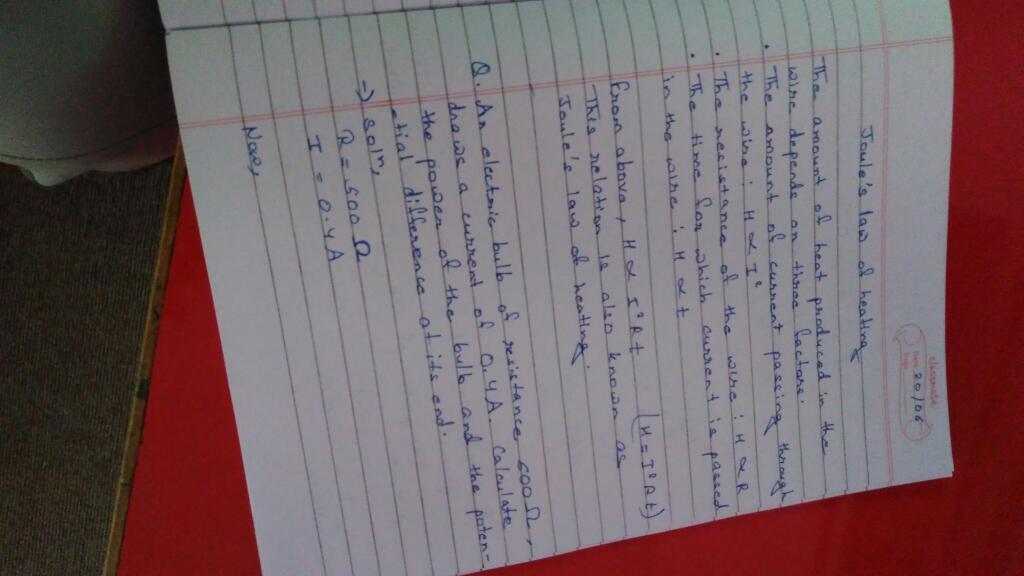 20/06
Joule's law of heating
The amount of heat produced in the
wire depends on three factors.
• The amount of current passing through
the wire : H ∝ I²
• The resistance of the wire : H ∝ R
• The time for which current is passed
in the wire : H ∝ t
From above, H ∝ I²Rt (H = I²Rt)
This relation is also known as
Joule's law of heating.
Q. An electric bulb of resistance 500 Ω,
draws a current of 0.4A. Calculate
the power of the bulb and the poten-
etial difference at its end.
→ soln,
R = 500 Ω
I = 0.4 A
Now,